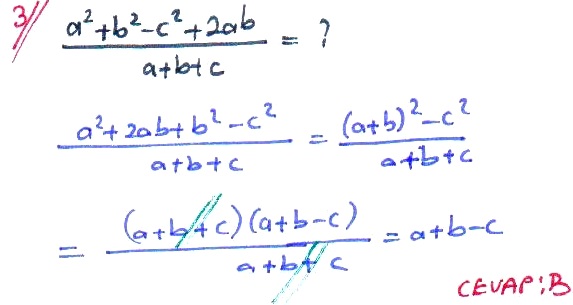 3) (a²+b²-c²+2ab)/(a+b+c) = ?
(a²+2ab+b²-c²)/(a+b+c) = ((a+b)²-c²)/(a+b+c)
= ((a+b+c)(a+b-c))/(a+b+c) = a+b-c
CEVAP:B